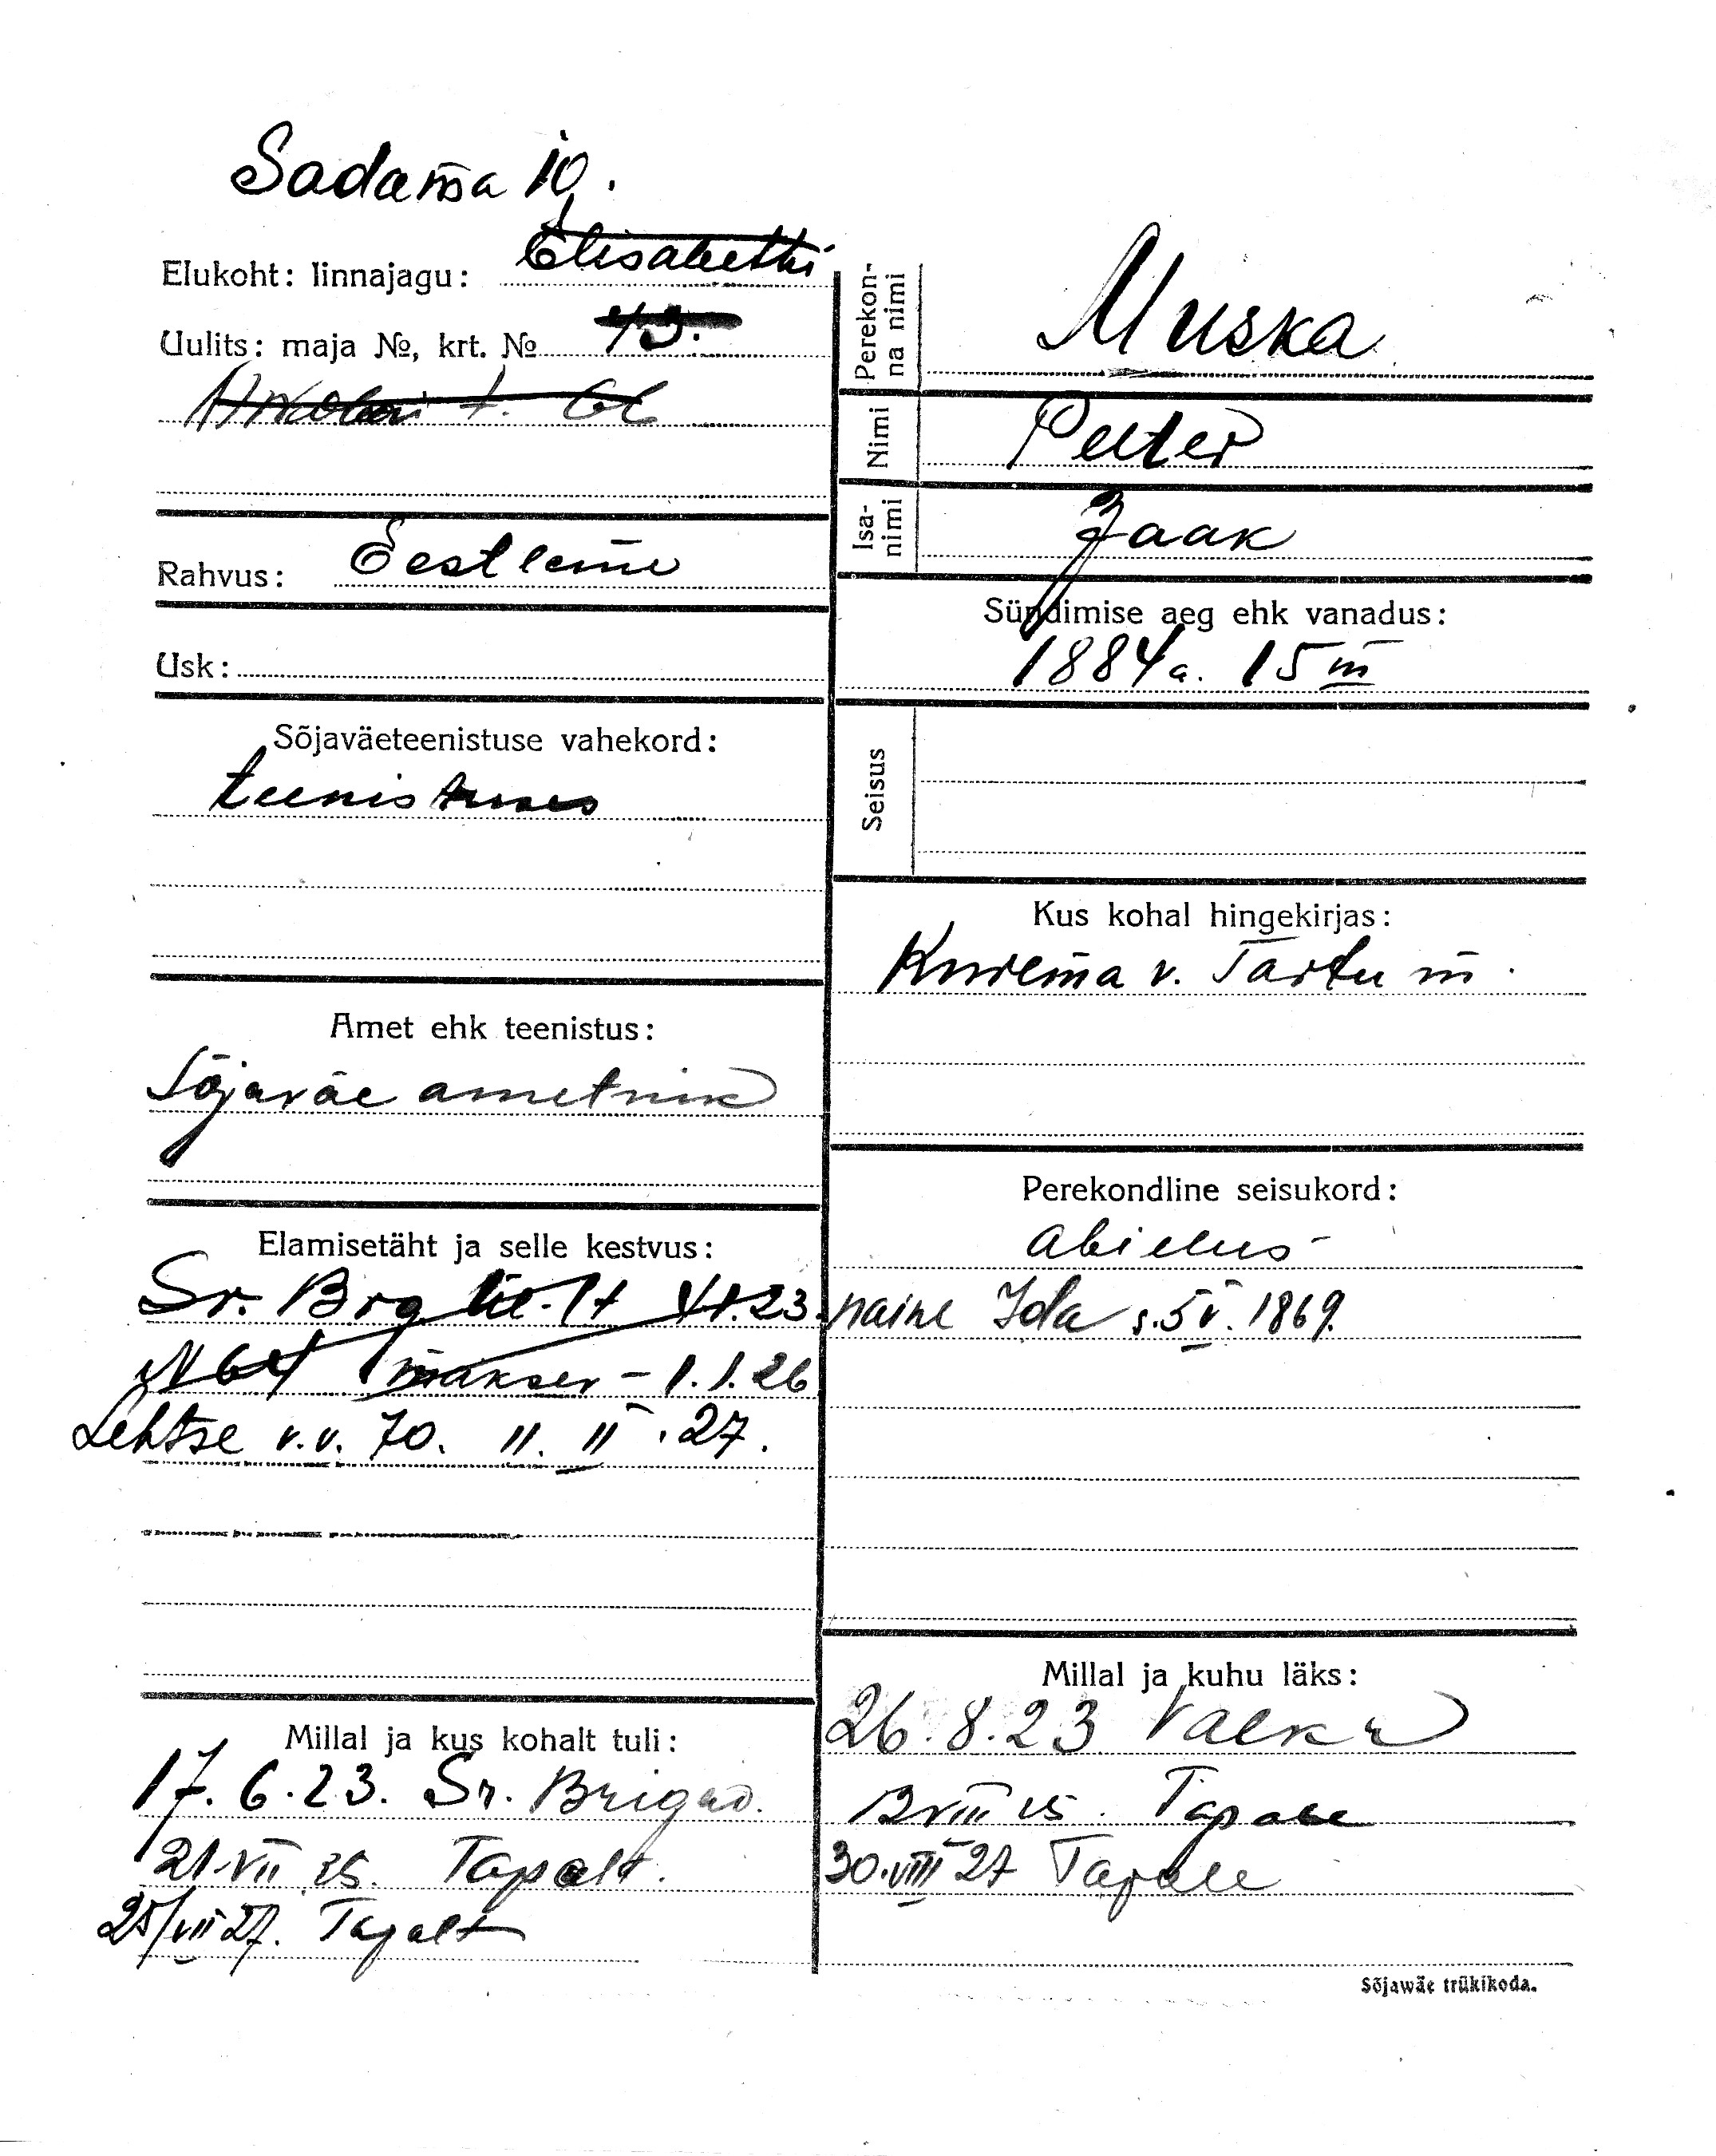 Sadama 10.
Elukoht: linnajagu: Elisabethi
Uulits: maja №, krt. № 43.
t.
Rahvus: Eestlane
Usk:
Sõjaväeteenistuse vahekord:
teenistuses
Amet ehk teenistus:
Sõjaväe ametnik
Elamisetäht ja selle kestvus:
Sr. Brg 23.
N 64 - 1.1.26
Lehtse v.v. 70. 11. II. 27.
Millal ja kus kohalt tuli:
17. 6. 23. Sr. Brigad.
21.VII 25. Tapalt.
25/VII 27. Tapalt
Perekonna nimi Muska
Nimi Peeter
Isanimi Jaak
Sündimise aeg ehk vanadus:
1884 a. 15 III
Seisus
Kus kohal hingekirjas:
Kurema v. Tartu m.
Perekondline seisukord:
abielus
naine Ida s. 5 V. 1869.
Millal ja kuhu läks:
26. 8. 23 Valka
VIII 25. Tapale
30.VIII 27 Tapale
Sõjawäe trükikoda.